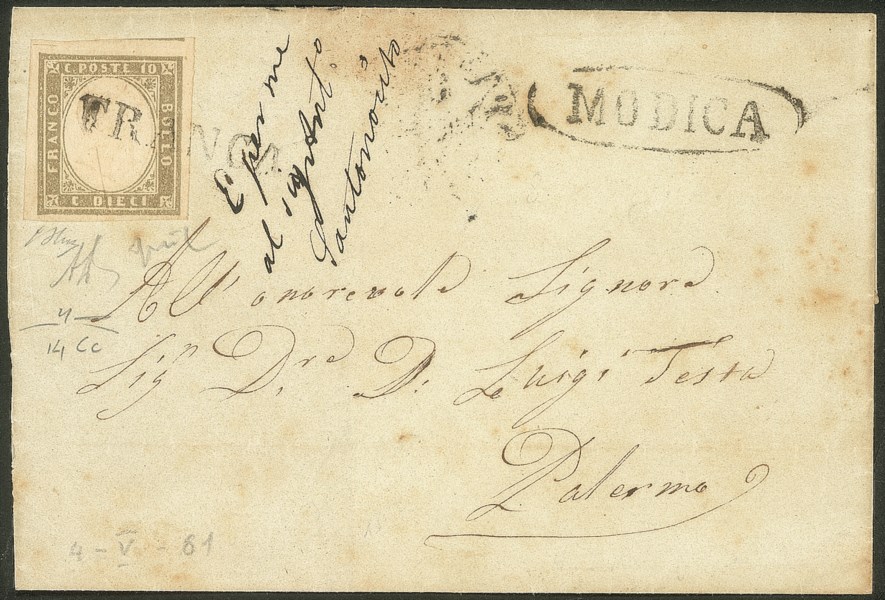 C. POSTE 10
FRANCO
BOLLO
C. DIECI
FRANCA
MODICA
E per me
al sigr Ant.o
Santonocito
All' onorevole Signore
Sigr D.re D. Luigi Testa
Palermo
4
14 CC
4 - V - 61